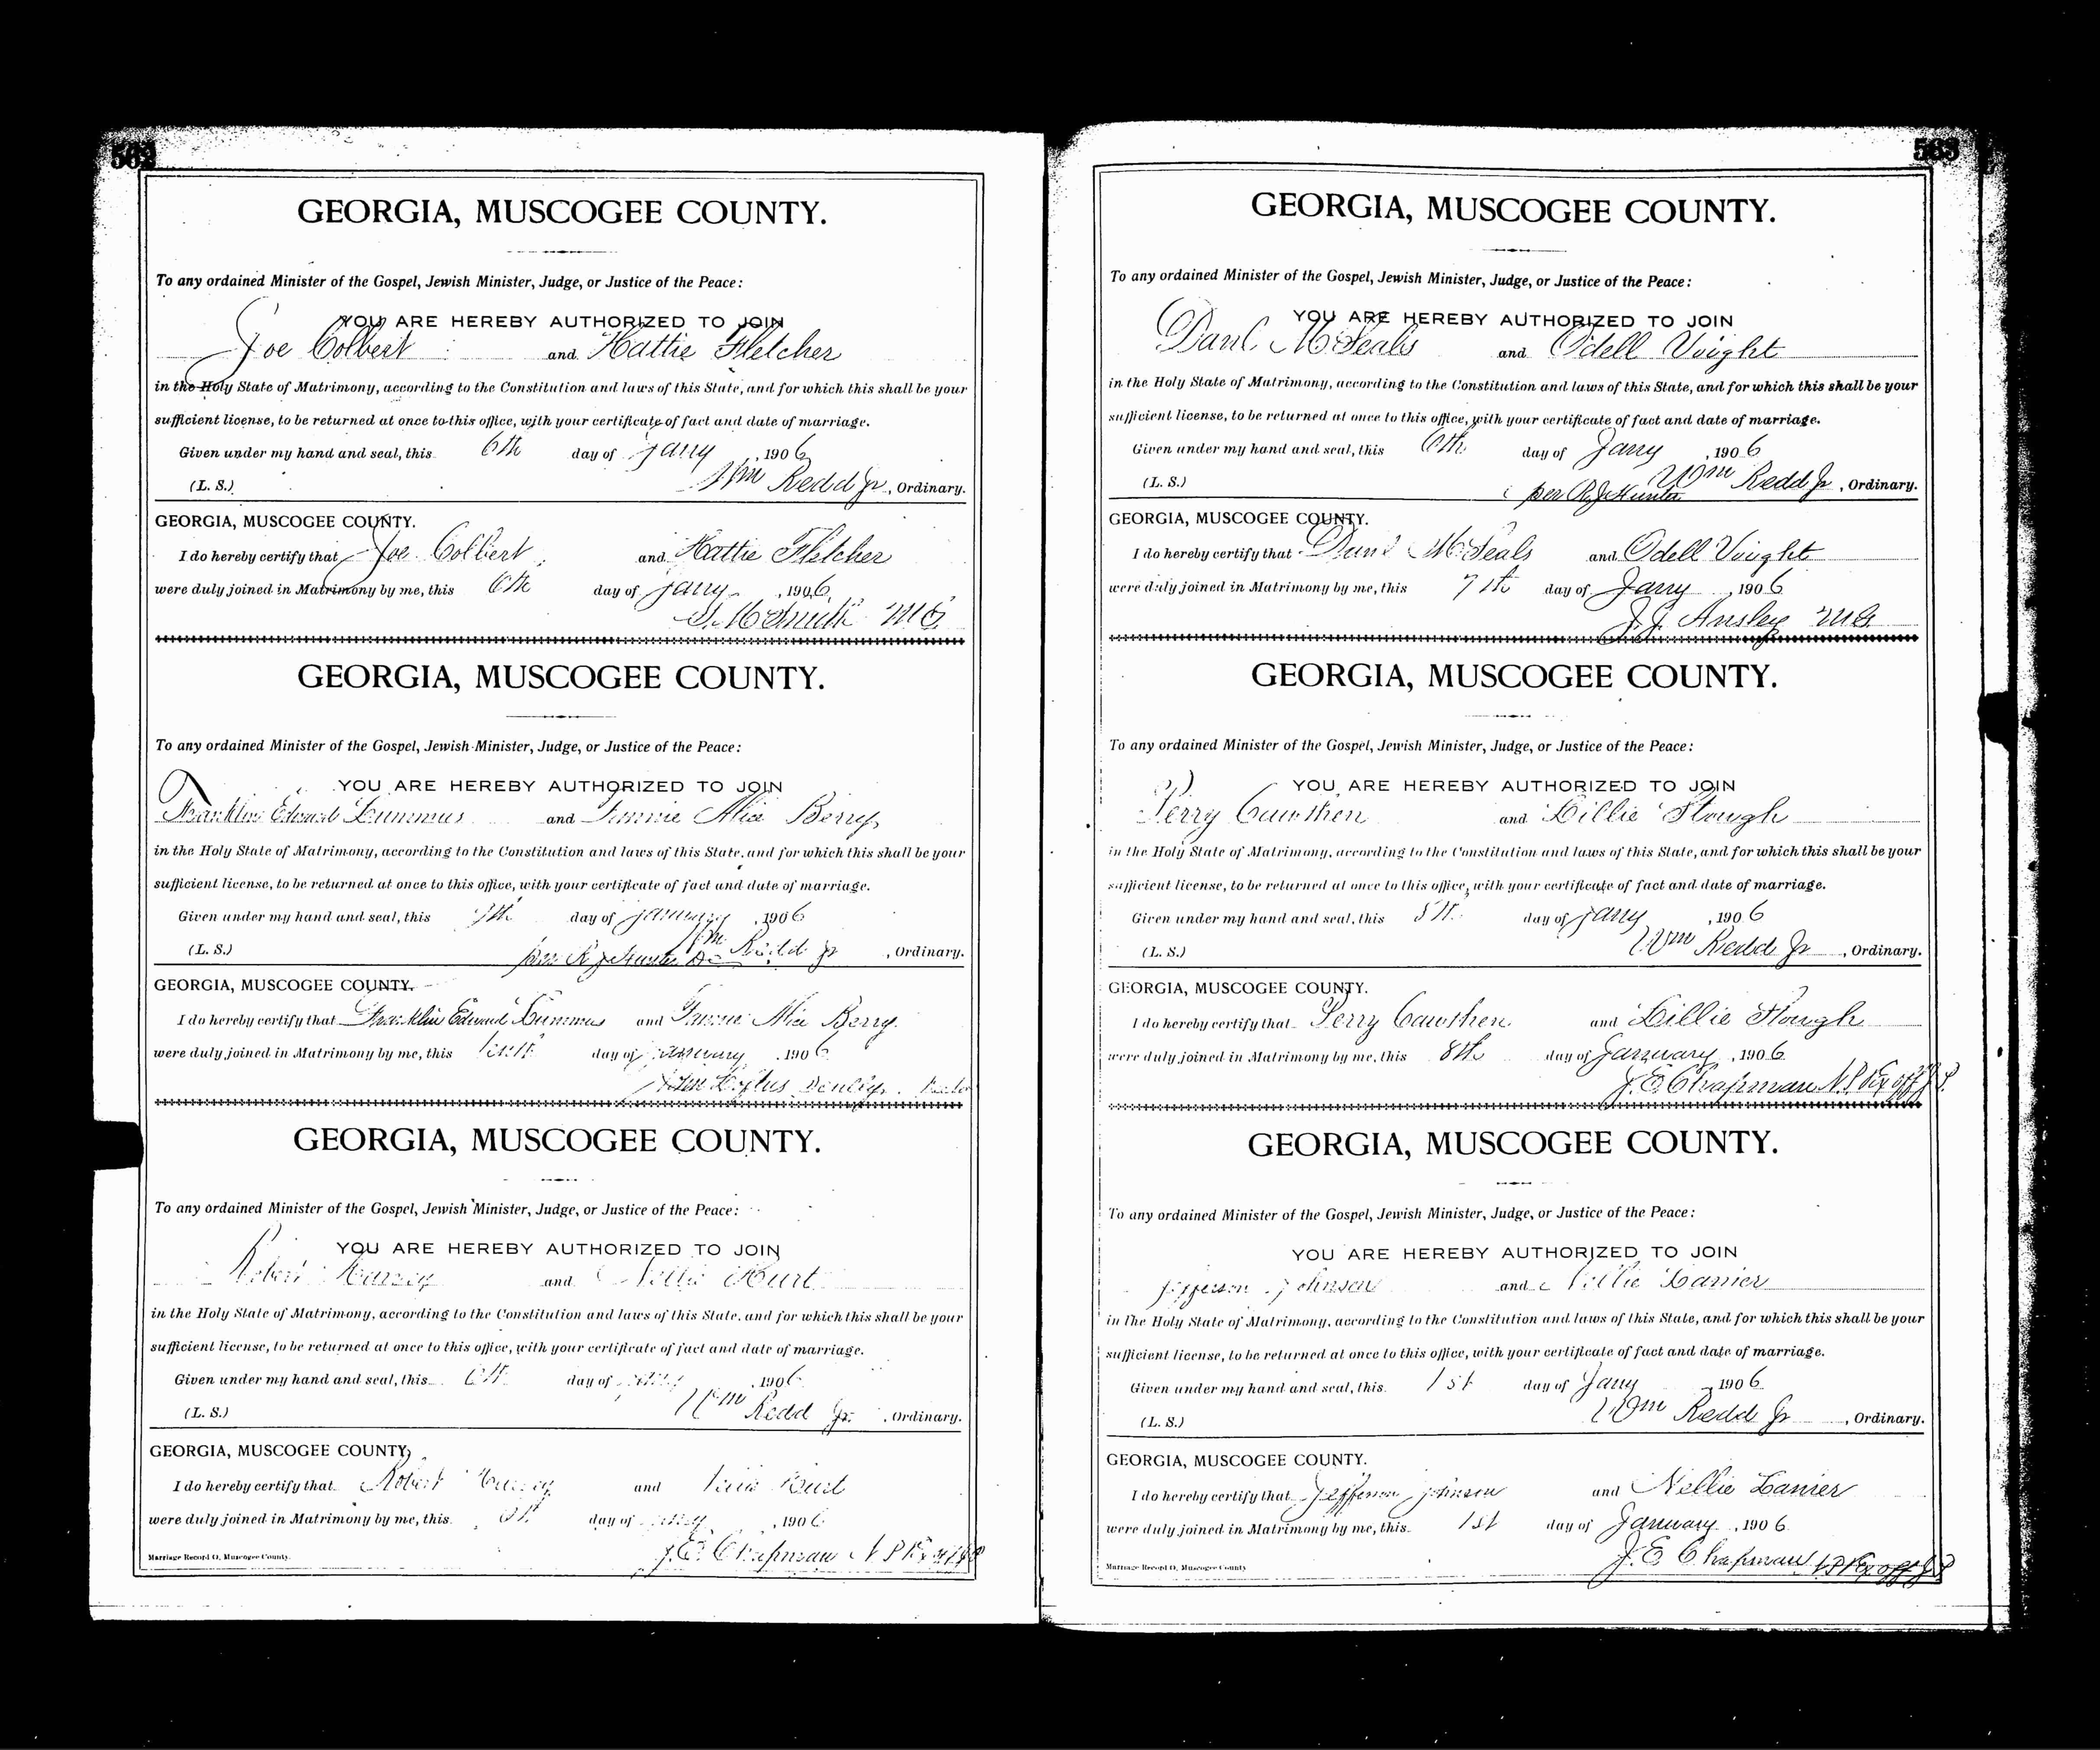 562
GEORGIA, MUSCOGEE COUNTY.
To any ordained Minister of the Gospel, Jewish Minister, Judge, or Justice of the Peace:
YOU ARE HEREBY AUTHORIZED TO JOIN
Joe Colbert and Hattie Fletcher
in the Holy State of Matrimony, according to the Constitution and laws of this State, and for which this shall be your
sufficient license, to be returned at once to this office, with your certificate of fact and date of marriage.
Given under my hand and seal, this 6th day of Jany, 1906
(L. S.) Wm Redd Jr, Ordinary.
GEORGIA, MUSCOGEE COUNTY.
I do hereby certify that Joe Colbert and Hattie Fletcher
were duly joined in Matrimony by me, this 6th day of Jany, 1906
Smith MG
GEORGIA, MUSCOGEE COUNTY.
To any ordained Minister of the Gospel, Jewish Minister, Judge, or Justice of the Peace:
YOU ARE HEREBY AUTHORIZED TO JOIN
Franklin Edward Lummus and Alice Berry
in the Holy State of Matrimony, according to the Constitution and laws of this State, and for which this shall be your
sufficient license, to be returned at once to this office, with your certificate of fact and date of marriage.
Given under my hand and seal, this day of January, 1906
(L. S.) per R J Hunter Wm Redd Jr, Ordinary.
GEORGIA, MUSCOGEE COUNTY.
I do hereby certify that Franklin Edward Lummus and Alice Berry
were duly joined in Matrimony by me, this day of January, 1906
GEORGIA, MUSCOGEE COUNTY.
To any ordained Minister of the Gospel, Jewish Minister, Judge, or Justice of the Peace:
YOU ARE HEREBY AUTHORIZED TO JOIN
Robert and Nellie Hurt
in the Holy State of Matrimony, according to the Constitution and laws of this State, and for which this shall be your
sufficient license, to be returned at once to this office, with your certificate of fact and date of marriage.
Given under my hand and seal, this 6th day of, 1906
(L. S.) Wm Redd Jr., Ordinary.
GEORGIA, MUSCOGEE COUNTY,
I do hereby certify that Robert and Hurt
were duly joined in Matrimony by me, this day of, 1906
J. E. Chapman N P & Ex off J P
Marriage Record O, Muscogee County.
563
GEORGIA, MUSCOGEE COUNTY.
To any ordained Minister of the Gospel, Jewish Minister, Judge, or Justice of the Peace:
YOU ARE HEREBY AUTHORIZED TO JOIN
McSeals and Odell Voight
in the Holy State of Matrimony, according to the Constitution and laws of this State, and for which this shall be your
sufficient license, to be returned at once to this office, with your certificate of fact and date of marriage.
Given under my hand and seal, this 6th day of Jany, 1906
(L. S.) per R J Hunter Wm Redd Jr, Ordinary.
GEORGIA, MUSCOGEE COUNTY.
I do hereby certify that McSeals and Odell Voight
were duly joined in Matrimony by me, this 7th day of Jany, 1906
J. J. Ansley MG
GEORGIA, MUSCOGEE COUNTY.
To any ordained Minister of the Gospel, Jewish Minister, Judge, or Justice of the Peace:
YOU ARE HEREBY AUTHORIZED TO JOIN
Perry Cawthen and Lillie Slough
in the Holy State of Matrimony, according to the Constitution and laws of this State, and for which this shall be your
sufficient license, to be returned at once to this office, with your certificate of fact and date of marriage.
Given under my hand and seal, this 8th day of Jany, 1906
(L. S.) Wm Redd Jr, Ordinary.
GEORGIA, MUSCOGEE COUNTY.
I do hereby certify that Perry Cawthen and Lillie Slough
were duly joined in Matrimony by me, this 8th day of January, 1906
J. E. Chapman N. P & Ex off J P.
GEORGIA, MUSCOGEE COUNTY.
To any ordained Minister of the Gospel, Jewish Minister, Judge, or Justice of the Peace:
YOU ARE HEREBY AUTHORIZED TO JOIN
Jefferson Johnson and Nellie Lanier
in the Holy State of Matrimony, according to the Constitution and laws of this State, and for which this shall be your
sufficient license, to be returned at once to this office, with your certificate of fact and date of marriage.
Given under my hand and seal, this 1st day of Jany, 1906
(L. S.) Wm Redd Jr, Ordinary.
GEORGIA, MUSCOGEE COUNTY.
I do hereby certify that Jefferson Johnson and Nellie Lanier
were duly joined in Matrimony by me, this 1st day of January, 1906
J. E. Chapman N P & Ex off J P
Marriage Record O, Muscogee County